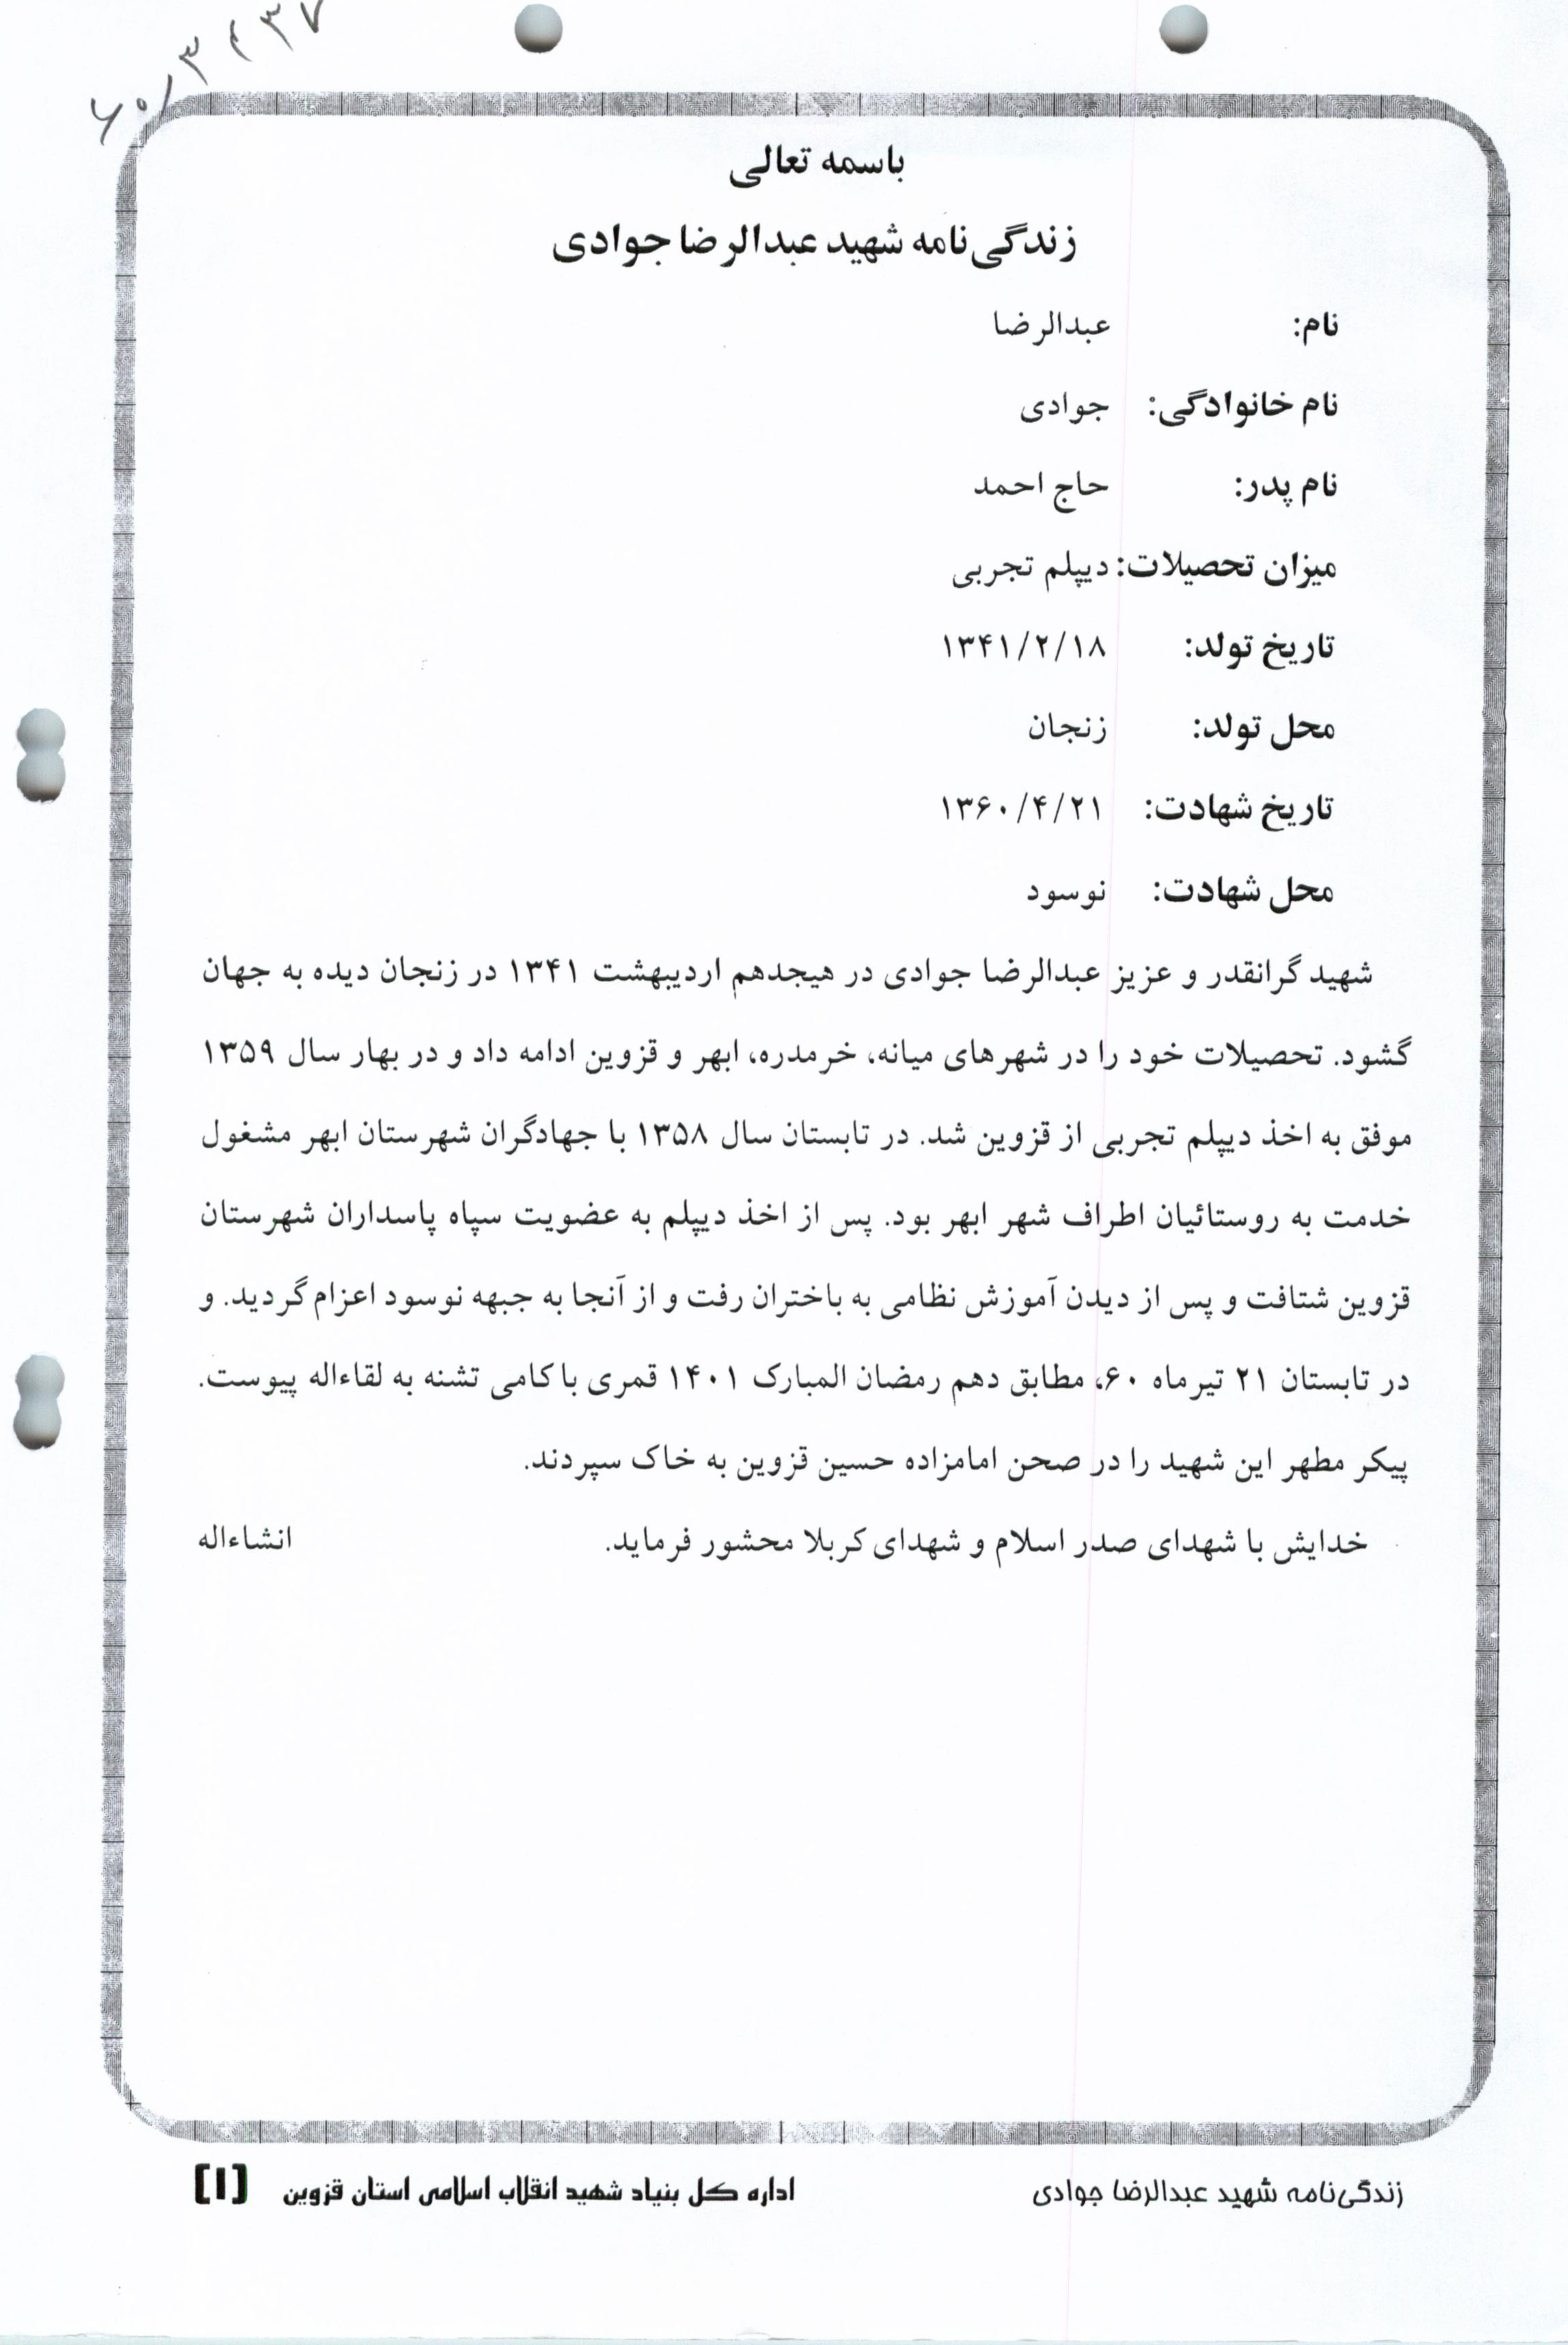 باسمه تعالی
زندگی‌نامه شهید عبدالرضا جوادی
نام: عبدالرضا
نام خانوادگی: جوادی
نام پدر: حاج احمد
میزان تحصیلات: دیپلم تجربی
تاریخ تولد: ۱۳۴۱/۲/۱۸
محل تولد: زنجان
تاریخ شهادت: ۱۳۶۰/۴/۲۱
محل شهادت: نوسود
شهید گرانقدر و عزیز عبدالرضا جوادی در هیجدهم اردیبهشت ۱۳۴۱ در زنجان دیده به جهان
گشود. تحصیلات خود را در شهرهای میانه، خرمدره، ابهر و قزوین ادامه داد و در بهار سال ۱۳۵۹
موفق به اخذ دیپلم تجربی از قزوین شد. در تابستان سال ۱۳۵۸ با جهادگران شهرستان ابهر مشغول
خدمت به روستائیان اطراف شهر ابهر بود. پس از اخذ دیپلم به عضویت سپاه پاسداران شهرستان
قزوین شتافت و پس از دیدن آموزش نظامی به باختران رفت و از آنجا به جبهه نوسود اعزام گردید. و
در تابستان ۲۱ تیرماه ۶۰، مطابق دهم رمضان المبارک ۱۴۰۱ قمری با کامی تشنه به لقاءاله پیوست.
پیکر مطهر این شهید را در صحن امامزاده حسین قزوین به خاک سپردند.
خدایش با شهدای صدر اسلام و شهدای کربلا محشور فرماید. انشاءاله
زندگی‌نامه شهید عبدالرضا جوادی اداره کل بنیاد شهید انقلاب اسلامی استان قزوین [۱]